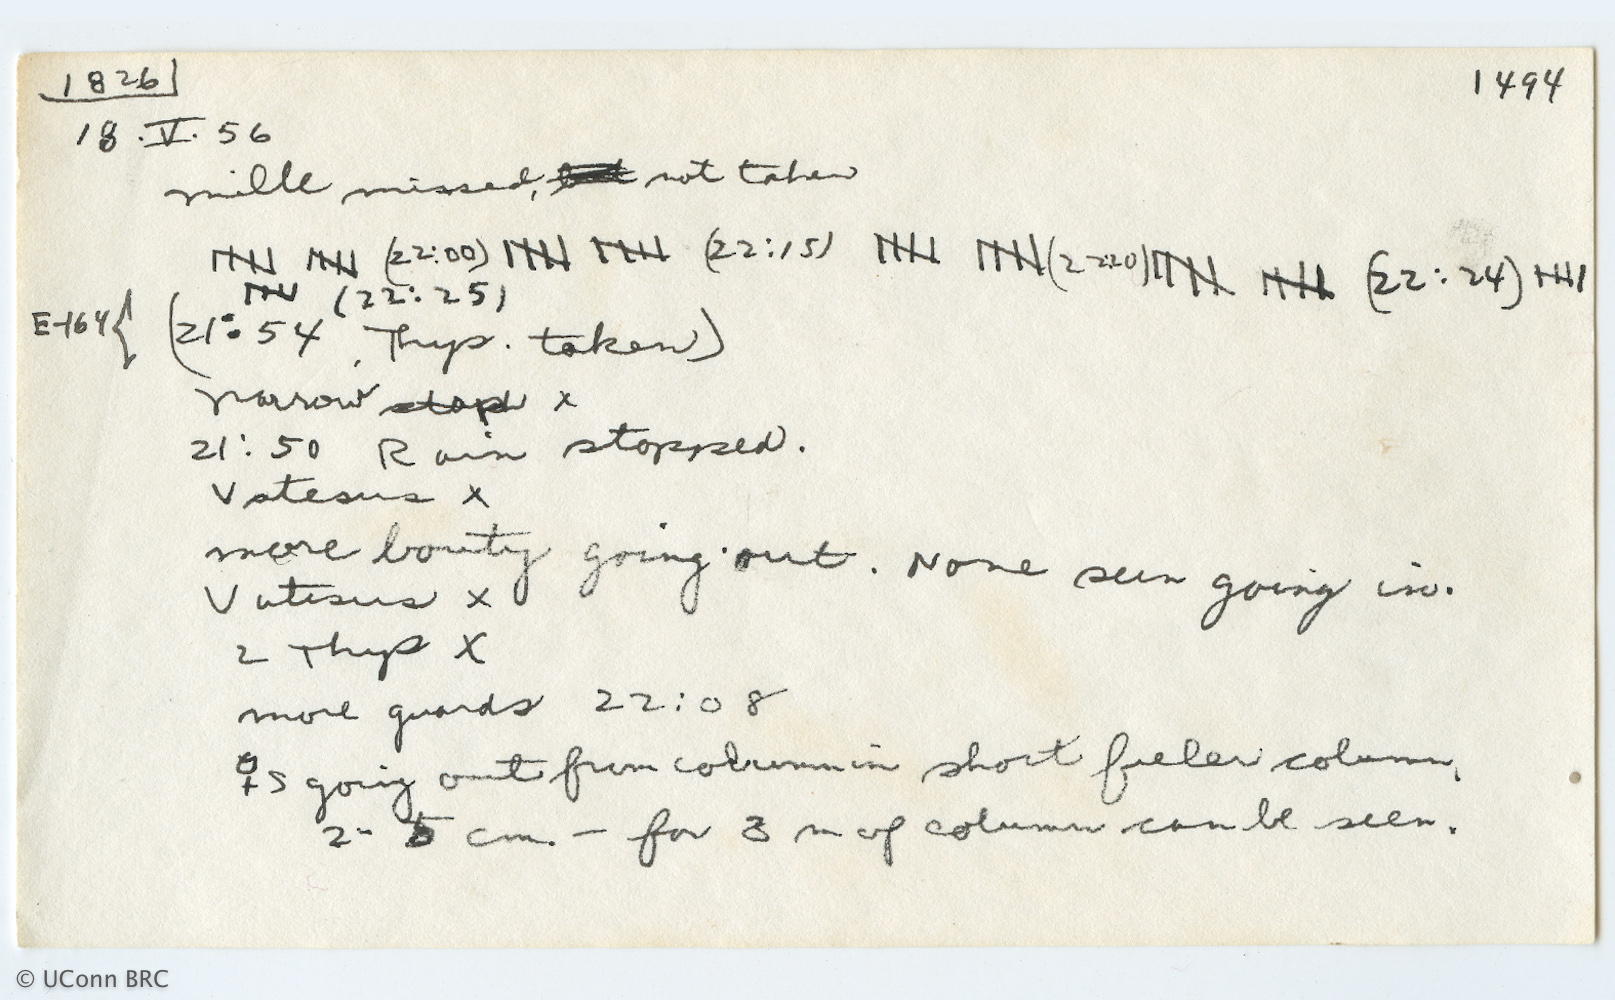 1826 1494
18.V.56
mille missed, not taken
(22:00) (22:15) (2220) (22:24)
(22:25)
E-164 { (21:54, Thyp. taken)
narrow x
21:50 Rain stopped.
Vatesus x
more booty going out. None seen going in.
Vatesus x
2 Thyp X
more guards 22:08
☿s going out from column in short feeler column,
2-5 cm. – for 3 m of column can be seen.
© UConn BRC